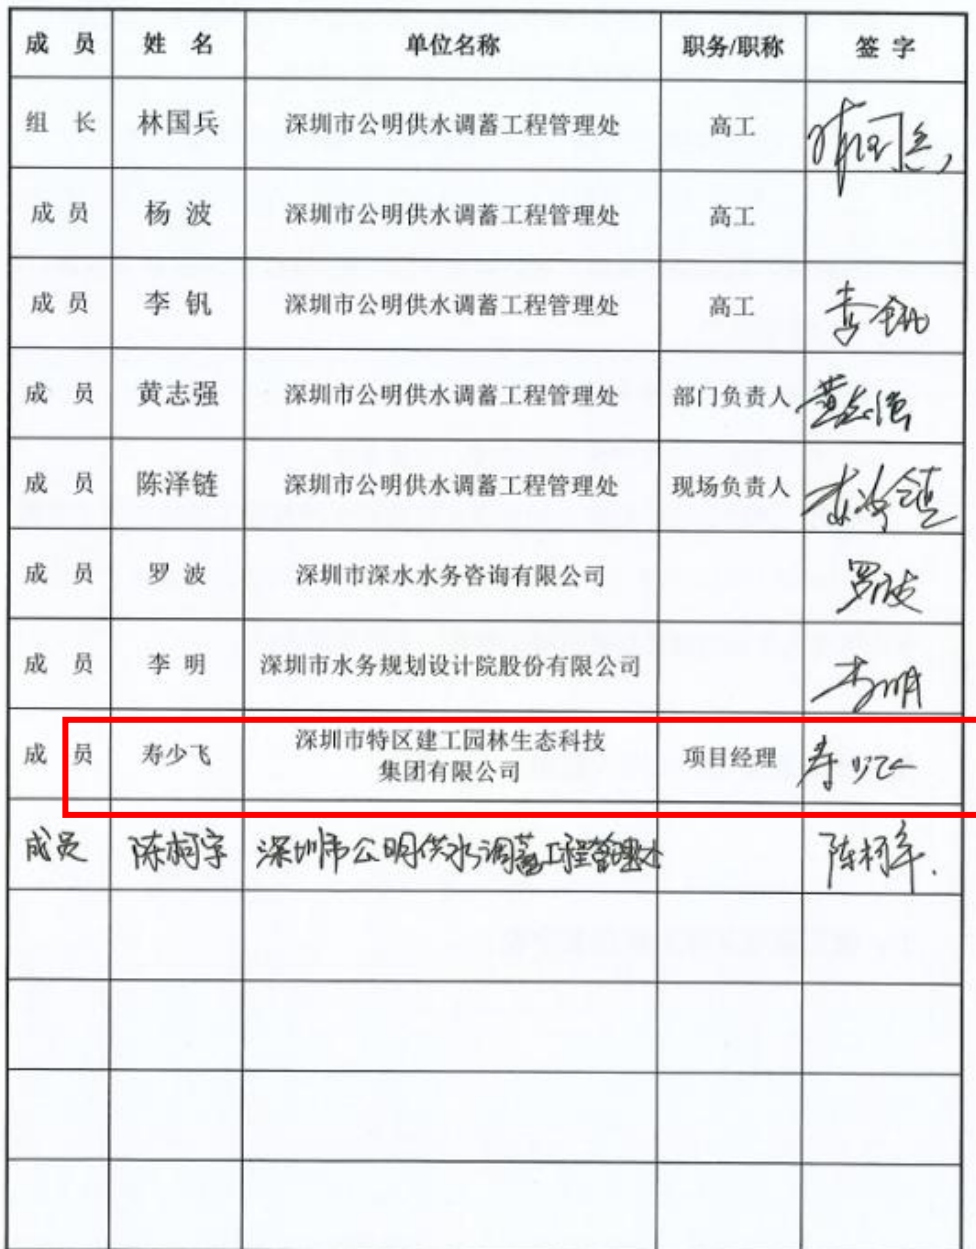 成 员 姓 名 单位名称 职务/职称 签 字
组 长 林国兵 深圳市公明供水调蓄工程管理处 高工 林国兵
成 员 杨 波 深圳市公明供水调蓄工程管理处 高工
成 员 李 钒 深圳市公明供水调蓄工程管理处 高工 李钒
成 员 黄志强 深圳市公明供水调蓄工程管理处 部门负责人 黄志强
成 员 陈泽链 深圳市公明供水调蓄工程管理处 现场负责人
成 员 罗 波 深圳市深水水务咨询有限公司 罗波
成 员 李 明 深圳市水务规划设计院股份有限公司 李明
成 员 寿少飞 深圳市特区建工园林生态科技
集团有限公司 项目经理 寿少飞
成员 陈柯宇 深圳市公明供水调蓄工程管理处 陈柯宇.